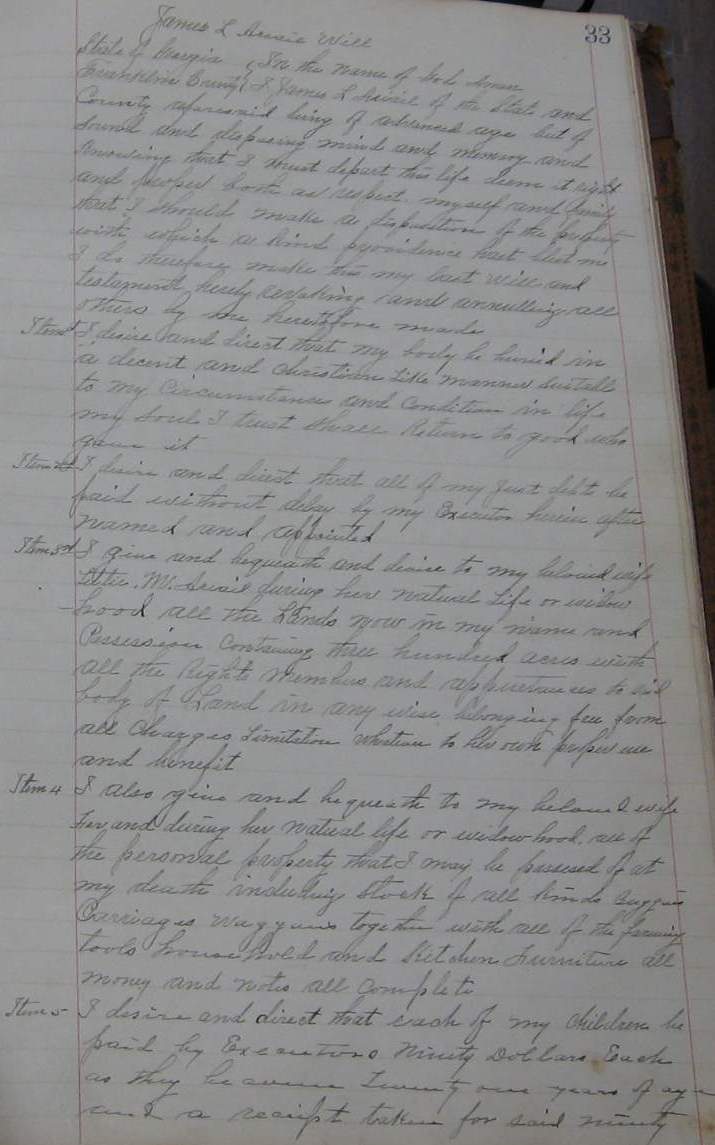 33
James L Will
State of Georgia In the name of God Amen
Franklin County I James L of the State and
County aforesaid being of advanced age but of
sound and disposing mind and memory and
Knowing that I must depart this life deem it right
and proper both as respect myself and family
that I should make a disposition of the property
with which a kind providence hast blest me
I do therefore make this my last will and
testament hereby revoking and annulling all
others by me heretofore made
Item 1st I desire and direct that my body be buried in
a decent and Christian like manner
to my Circumstances and Condition in life
my soul I trust shall Return to good who
gave it
Item 2d I desire and direct that all of my just debts be
paid without delay by my Executor herein after
named and appointed
Item 3rd I give and bequeath and devise to my beloved wife
M. during her natural Life or widow
hood all the Lands now in my name and
Possession Containing three hundred acres with
all the rights members and to said
body of Land in any wise belonging free from
all Limitation to her own proper use
and benefit
Item 4 I also give and bequeath to my beloved wife
For and during her natural life or widow hood all of
the personal property that I may be possessed of at
my death including Stock of all kinds
Carriages together with all of the farming
tools household and Kitchen Furniture all
money and notes all Complete
Item 5 I desire and direct that each of my Children be
paid by Executors Ninety Dollars Each
as they become Twenty one years of age
and a receipt taken for said ninety